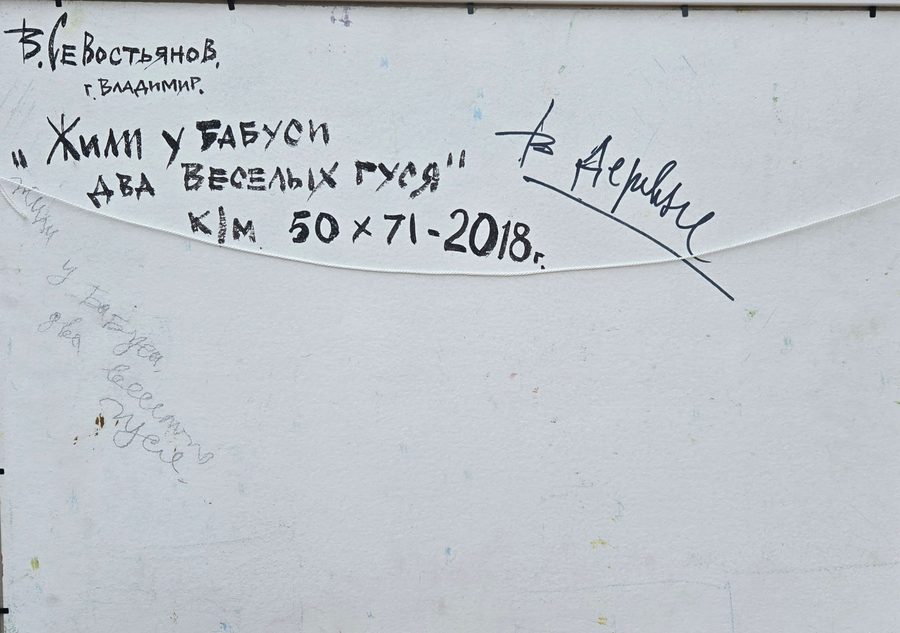 В. Севостьянов.
г. Владимир.
"Жили у бабуси
два веселых гуся"
к/м 50 x 71 - 2018г.
В
жили
у бабуси,
два
гуся.